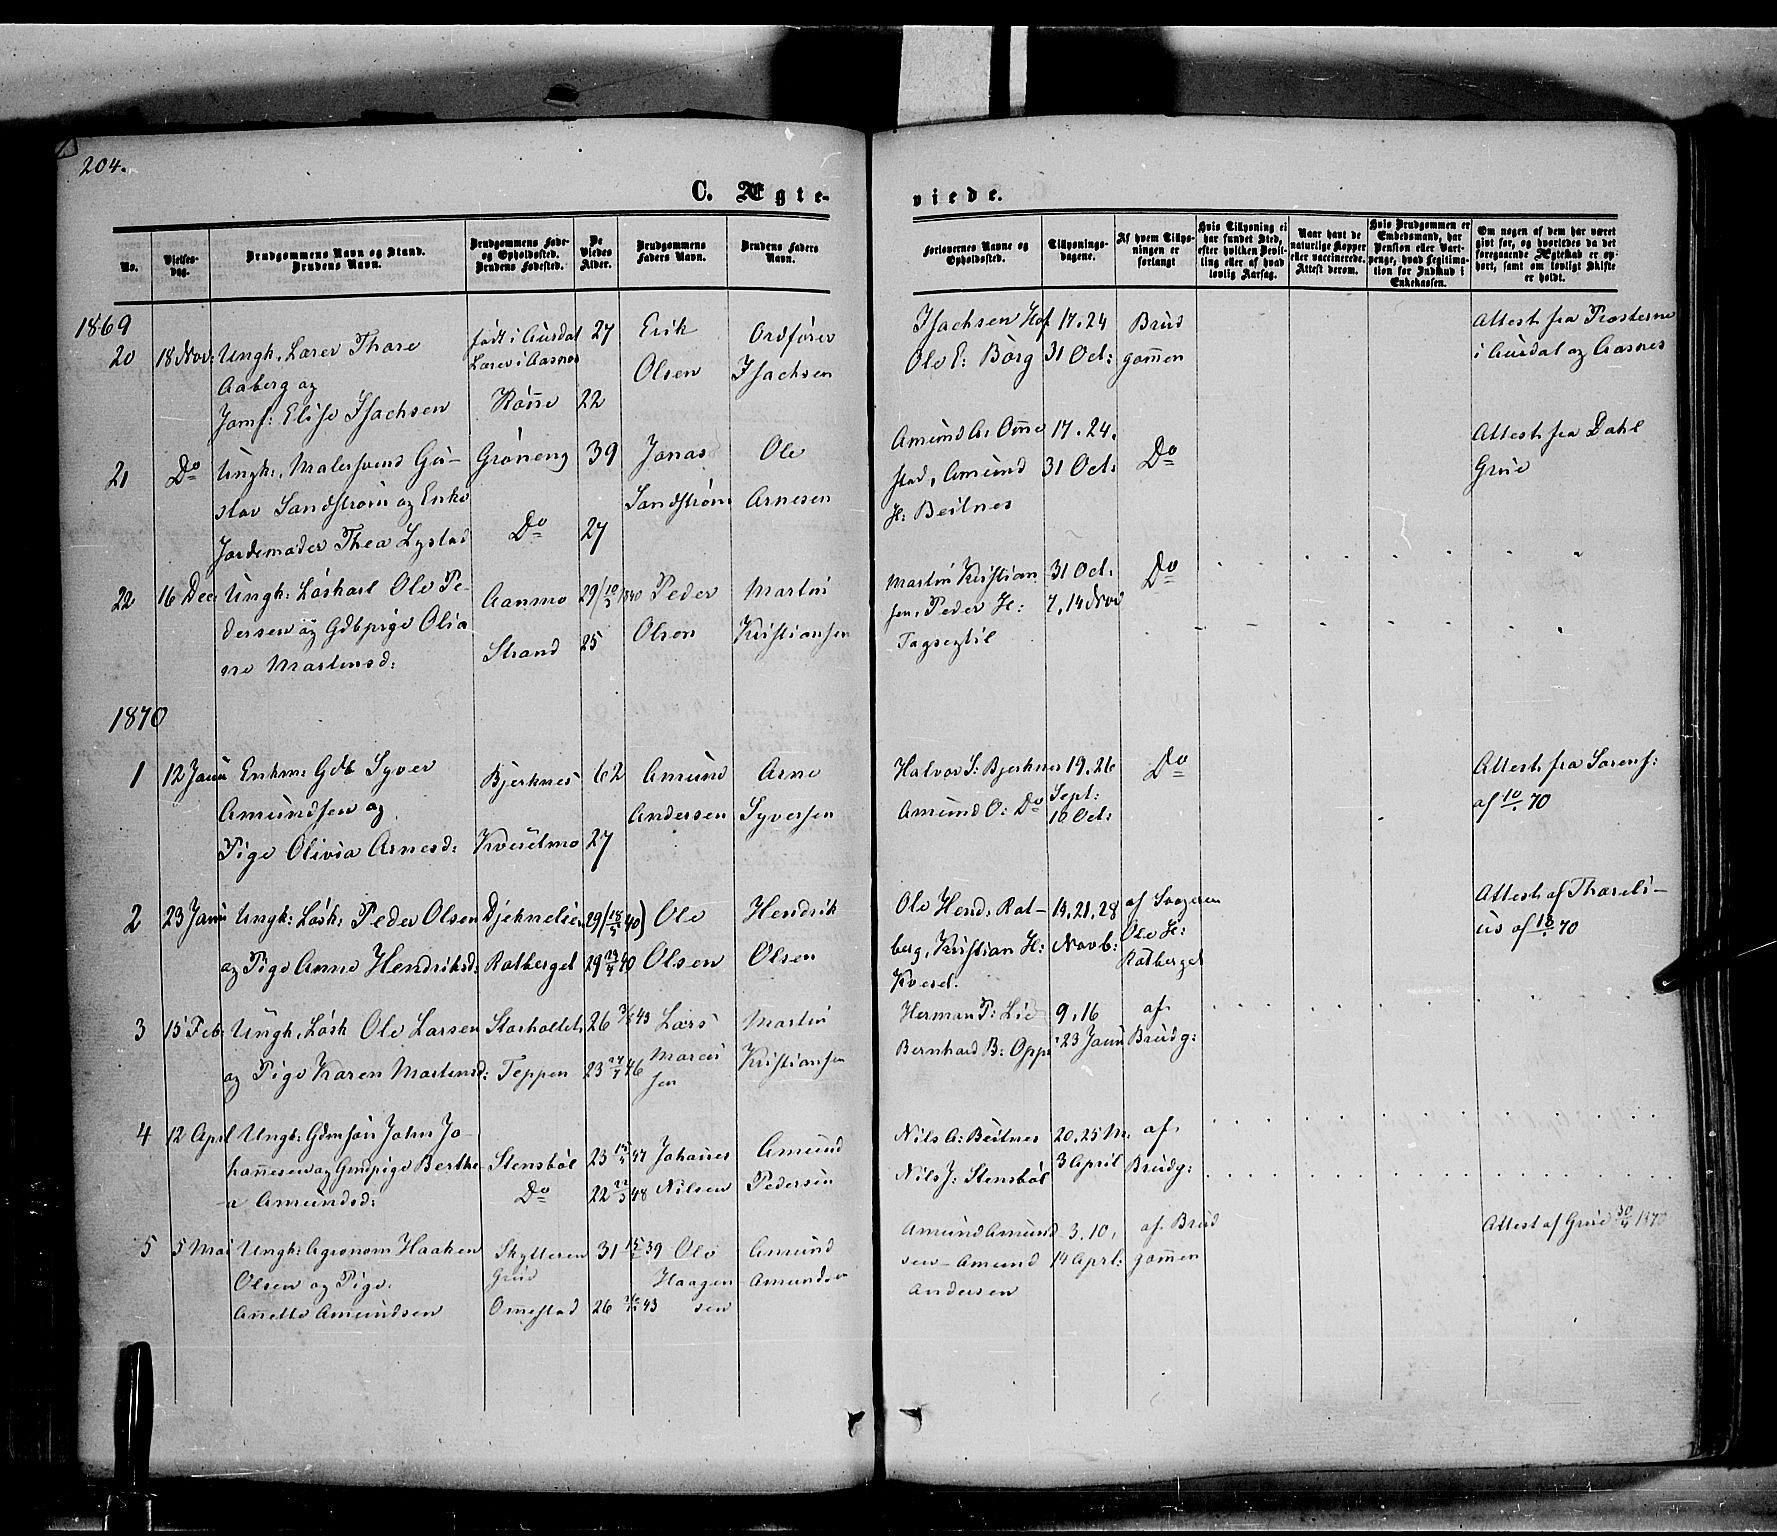 204.
C. Ægte-
viede.
No.
Vielses-
dag.
Brudgommens Navn og Stand.
Brudens Navn.
Brudgommens Føde-
og Opholdssted.
Brudens Fødested.
De
Viedes
Alder.
Brudgommens
Faders Navn.
Brudens Faders
Navn.
Forlovernes Navne og
Opholdssted.
Tillysnings-
dagene.
Af hvem Tillys-
ningen er
forlangt
Hvis Tillysning ei
har fundet Sted,
efter hvilken Bevil-
ling eller af hvad
lovlig Aarsag.
Naar havt de
naturlige Kopper
eller vaccinerede.
Attest derom.
Hvis Brudgommen er
Embedsmand, har
Pension eller Vart-
penge, hvad Legitima-
tion for Indskud i
Enkekassen.
Om nogen af dem har været
givt før, og hvorledes da det
foregaaende Ægteskab er op-
hørt, samt om lovligt Skifte
er holdt.
1869
20 18 Nov: Ungk. Lærer Thore
Aaberg og
Jomf: Elise Isachsen
født i Aurdal
Lærer i Aasnes
27
22
Erik
Olsen
Ordfører
Isachsen
Isachsen Hof
Ole E: Borg
17. 24
31 Oct:
Brud
gomen
Attest fra Præsterne
i Aurdal og Aasnes
21 Do Ungk. Malersvend Gu-
stav Sandstrøm og Enke
Jordemoder Thea Lystad
Grøneng
Do
39
27
Jonas
Sandstrøm
Ole
Arnesen
Amund A: Ome
stad, Amund
H: Beitnes
17. 24.
31 Oct:
Do
Attest fra Dahl
Grue
22 16 Dec Ungk: Løskarl Ole Pe-
dersen og Gdbpige Olia
ne Martinsd:
Aanmo
Strand
29 (10/5 1840
25
Peder
Olsen
Martin
Kristiansen
Martin Kristian
sen, Peder H:
31 Oct.
7, 14 Nov
Do
1870
1 12 Janu Enkm: Gdb Syver
Amundsen og
Pige Olivia Arnesd:
Bjerknes
Kveselmo
62
27
Amund
Andersen
Arne
Syversen
Halvor S: Bjerknes
Amund O: Do
19. 26
Sept:
10 Oct:
Do
Attest fra Sorenf:
af 10/1 70
2 23 Janu Ungk: Løsk: Peder Olsen
og Pige Anne Hendriksd:
Djeknelien
Rotberget
29 (18/5 40)
29 29/4 40
Ole
Olsen
Hendrik
Olsen
Ole Hend: Rot-
berg, Kristian H:
Kvesel.
14, 21, 28
Novb:
af Svogeren
Ole H:
Rotberget
Attest af Thoreli-
us af 18/1 70
3 15 Feb: Ungk. Løsk Ole Larsen
og Pige Karen Martinsd:
Storholtet
Teppen
26 3/8 43
23 24/7 46
Lars
Marcus
sen
Martin
Kristiansen
Herman P: Lie
Bernhard B: Opps
9, 16
23 Janu
af
Brudg:
4 12 Apri Ungk: Gdmsøn John Jo-
hanesen og Gmdpige Berthe-
a Amundsd:
Stensbøl
Do
23 15/4 47
22 22/3 48
Johanes
Nilsen
Amund
Pedersen
Nils A: Beitnes
Nils J: Stensbøl
20, 25 M.
3 April
af
Brudg:
5 5 Mai Ungk: Agronom Haaken
Olsen og Pige
Anette Amundsen
Skytteren
Grue
Omestad
31 39
26 43
Ole
Haagen
sen
Amund
Amundsen
Amund Amund
sen - Amund
Andersen
3, 10,
14 Aprl:
af Brud
gomen
Attest af Grue 30/4 1870